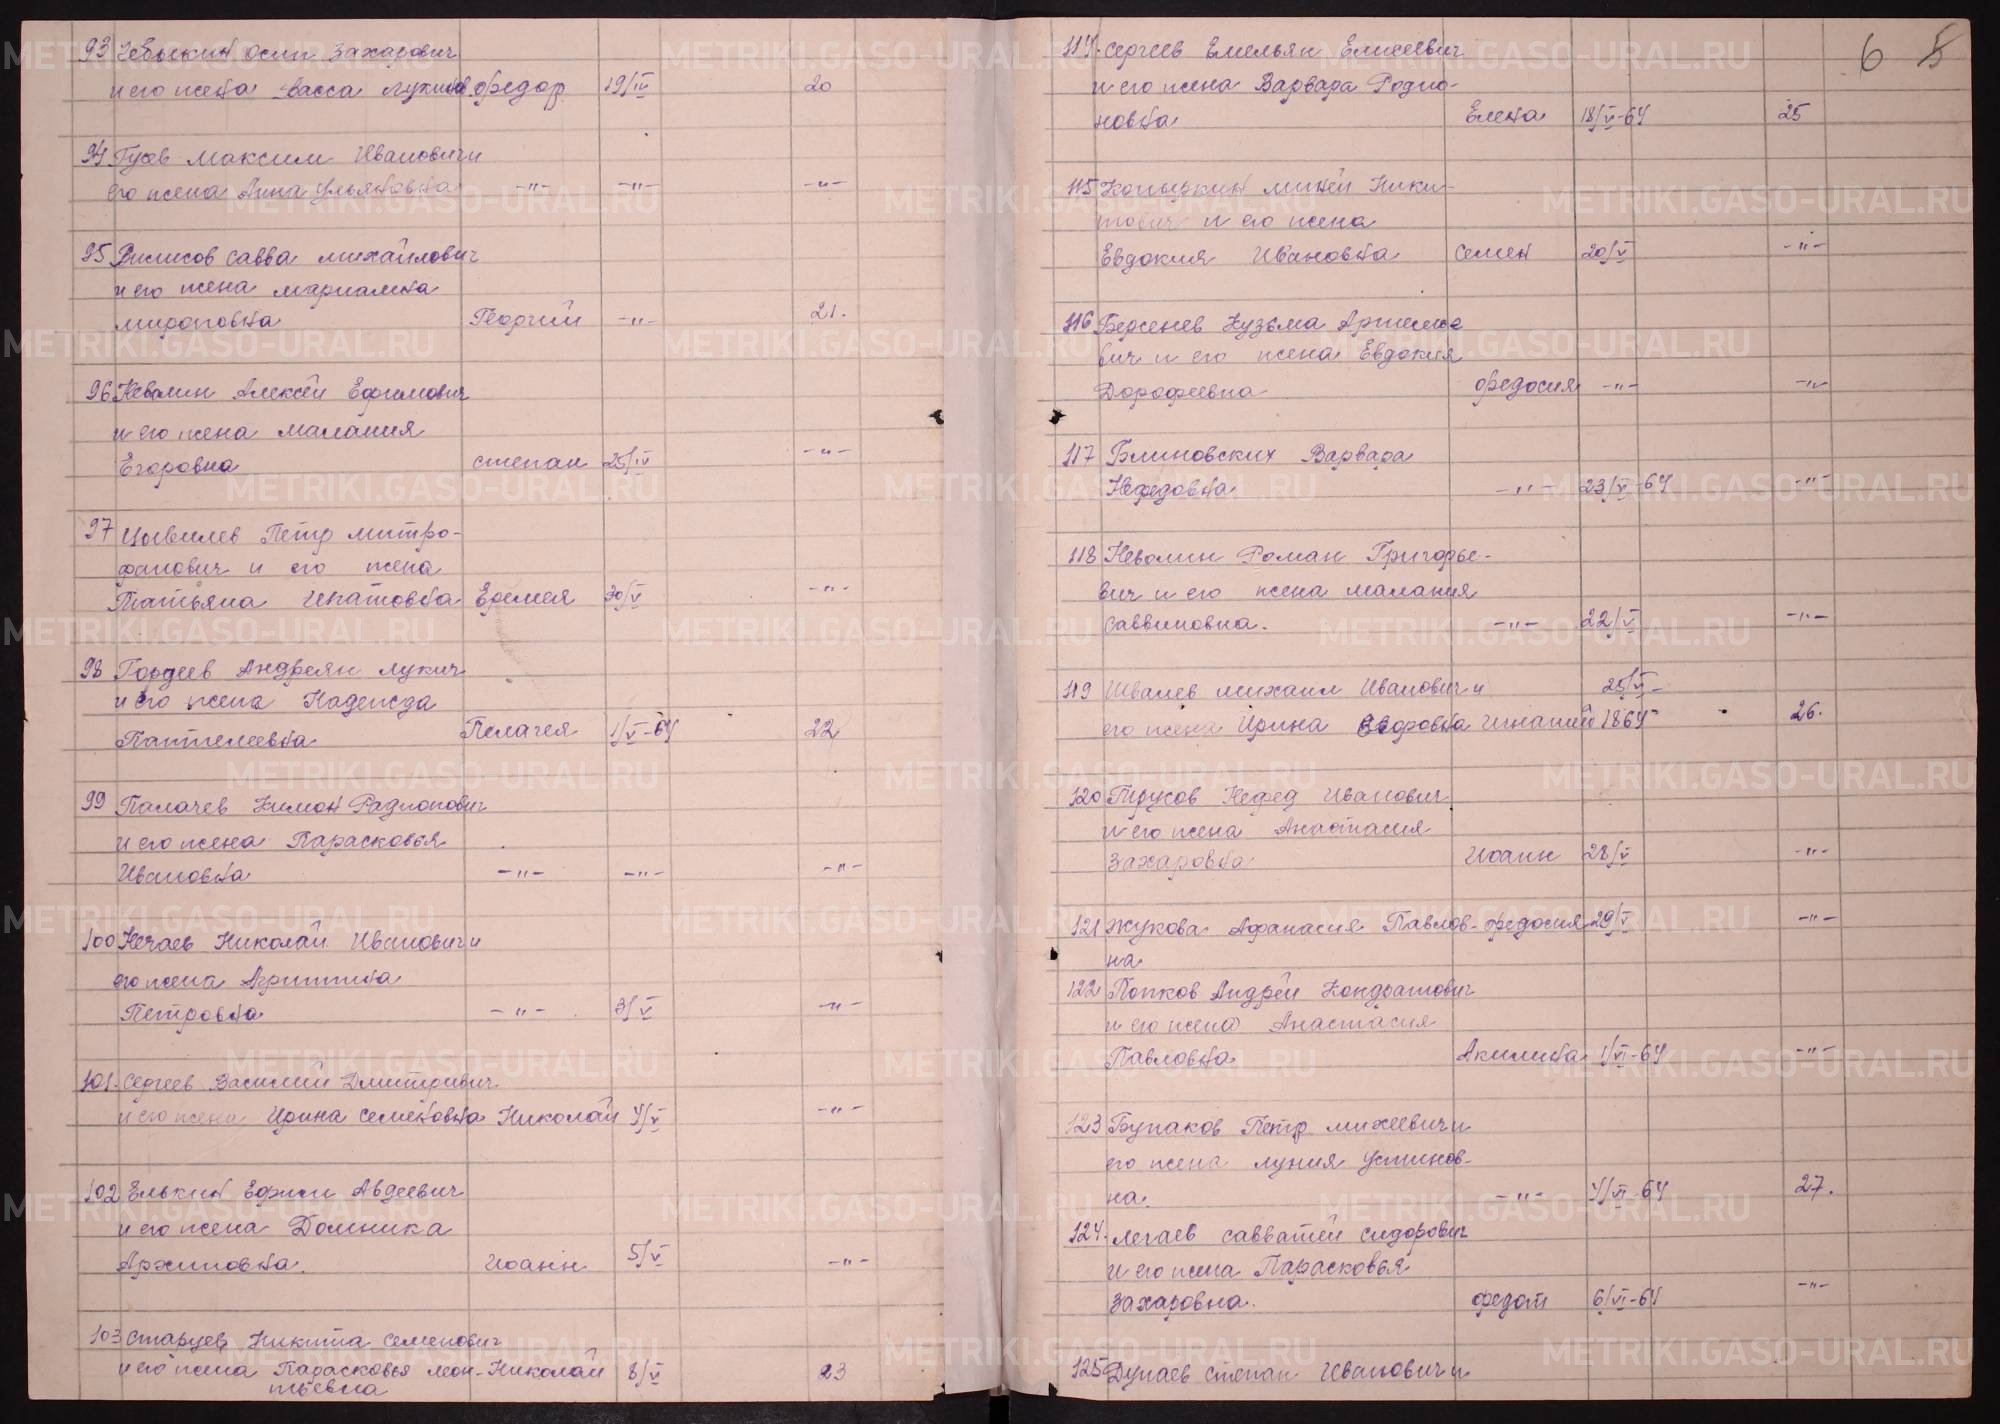 93 Чебыкин Осип Захарович
и его жена Васса Лукинов Федор 19/IV 20
94 Гусев Максим Иванович и
его жена Анна Ульяновна -"- -"- -"-
95 Савва Михайлович
и его жена Мариамна
Мироновна Георгий -"- 21.
96 Неволин Алексей Ефимович
и его жена Малания
Егоровна Степан 25/IV -"-
97 Цывилев Петр Митро-
фанович и его жена
Татьяна Ипатовна Еремея 30/V -"-
98 Гордеев Андреян Лукич
и его жена Надежда
Пантелеевна Пелагея 1/V-64 22
99 Палачев Кимон Радионович
и его жена Парасковья
Ивановна -"- -"- -"-
100 Нечаев Николай Иванович и
его жена Агриппина
Петровна -"- 3/V -"-
101. Сергеев Василий Дмитриевич
и его жена Ирина Семеновна Николай 4/V -"-
102 Елькин Ефим Авдеевич
и его жена Домника
Архиповна. Иоанн 5/V -"-
103 Старцев Никита Семенович
и его жена Парасковья Мои- Николай 8/V 23
114. Сергеев Емельян Елисеевич 6
и его жена Варвара Родио-
новна Елена 18/V-64 25
115 Копыркин Миней Ники-
тович и его жена
Евдокия Ивановна Семен 20/V -"-
116 Берсенев Кузьма Артемье
вич и его жена Евдокия
Дорофеевна Федосия -"- -"-
117 Блиновских Варвара
Нефедовна -"- 23/V-64 -"-
118 Неволин Роман Григорье-
вич и его жена Малания
Саввиновна. -"- 22/V -"-
119 Швалев Михаил Иванович и 25/V-
его жена Ирина Игнатий 1864 26.
120 Нефед Иванович
и его жена Анастасия
Захаровна Иоанн 28/V -"-
121 Жукова Афанасия Павлов- Федосия 29/V -"-
на
122 Попков Андрей Кондратович
и его жена Анастасия
Павловна Акилина 1/VI-64 -"-
123 Бунаков Петр Михеевич и
его жена Лупия Устинов-
на. -"- 4/VI-64 27.
124. Легаев Савватей Сидорович
и его жена Парасковья
Захаровна. Федот 6/VI-64 -"-
125 Дунаев Степан Иванович и